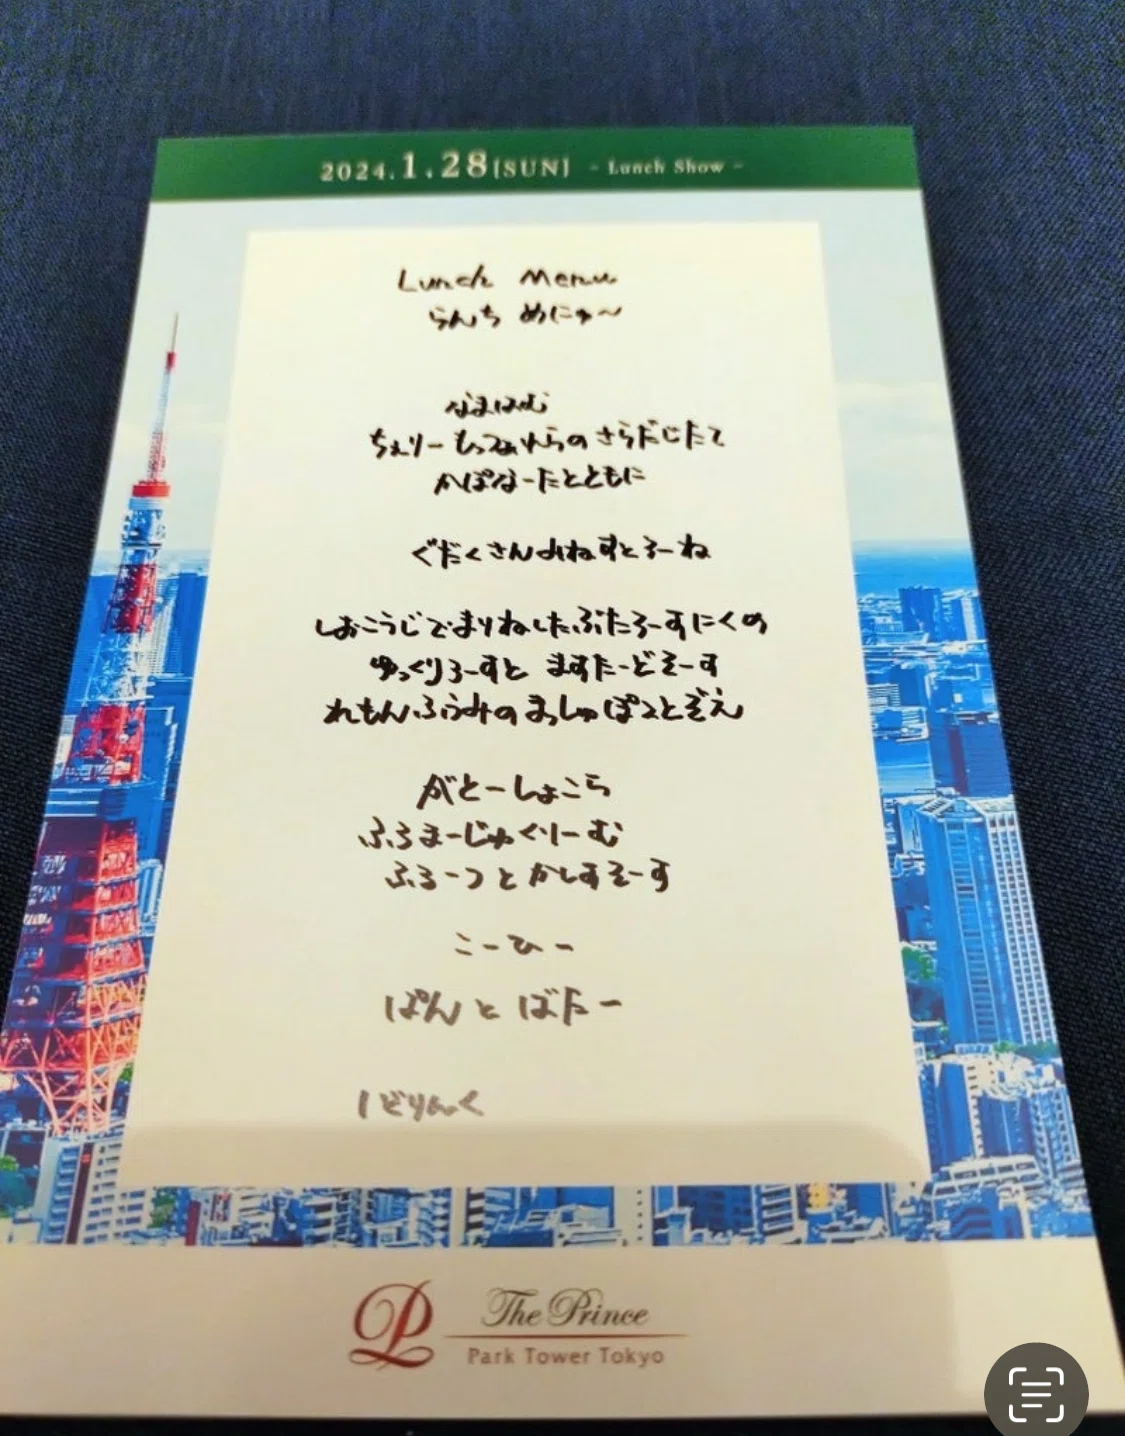 2024.1.28[SUN] - Lunch Show -
Lunch Menu
らんち めにゅ〜
なまはむ
ちぇりーもっつぁれらの さらだじたて
かぽなーたとともに
ぐだくさんみねすとろーね
しおこうじでまりねしたぶたろーすにくの
ゆっくりろーすと ますたーどそーす
れもんふうみのまっしゅぽてとぞえ
がとーしょこら
ふろまーじゅくりーむ
ふるーつと かしすそーす
こーひー
ぱんと ばたー
1どりんく
P The Prince
Park Tower Tokyo